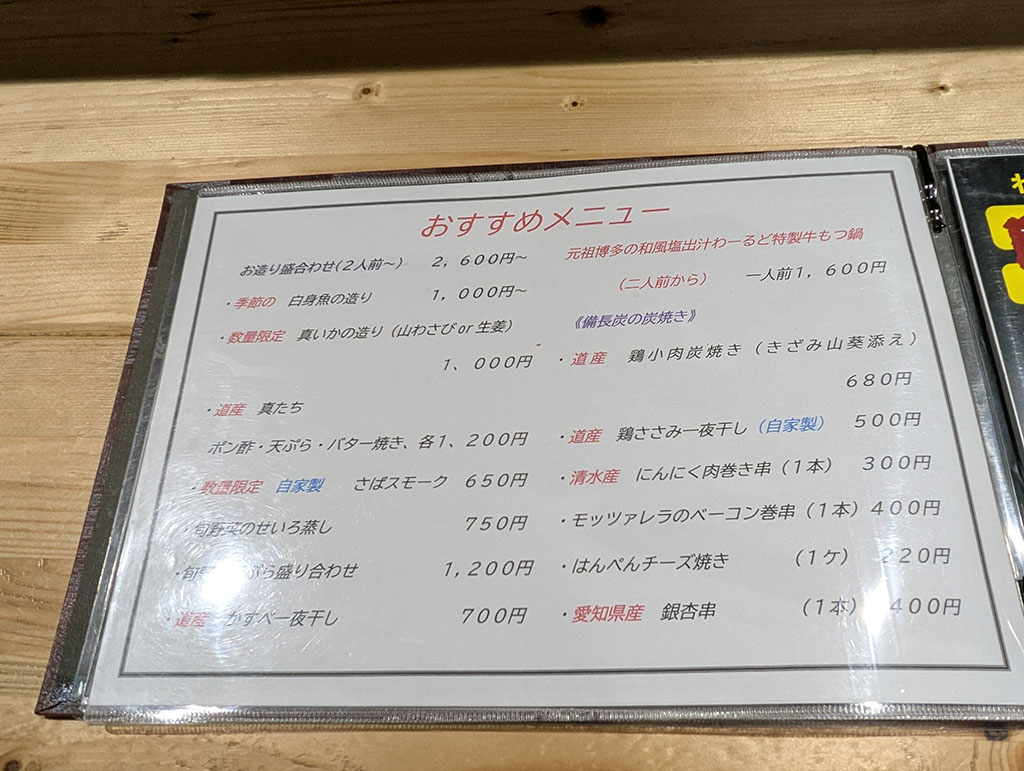 おすすめメニュー
お造り盛合わせ(2人前～) 2，600円～
・季節の 白身魚の造り 1，000円～
・数量限定 真いかの造り（山わさび or 生姜）
1、000円
・道産 真たち
ポン酢・天ぷら・バター焼き、各1、200円
・数量限定 自家製 さばスモーク 650円
・旬野菜のせいろ蒸し 750円
・旬 ぷら盛り合わせ 1,200円
・道産 かすべ一夜干し 700円
元祖博多の和風塩出汁わーるど特製牛もつ鍋
（二人前から） 一人前1，600円
《備長炭の炭焼き》
・道産 鶏小肉炭焼き（きざみ山葵添え）
680円
・道産 鶏ささみ一夜干し（自家製） 500円
・清水産 にんにく肉巻き串（1本） 300円
・モッツァレラのベーコン巻串（1本）400円
・はんぺんチーズ焼き （1ケ） 220円
・愛知県産 銀杏串 （1本） 400円
わ